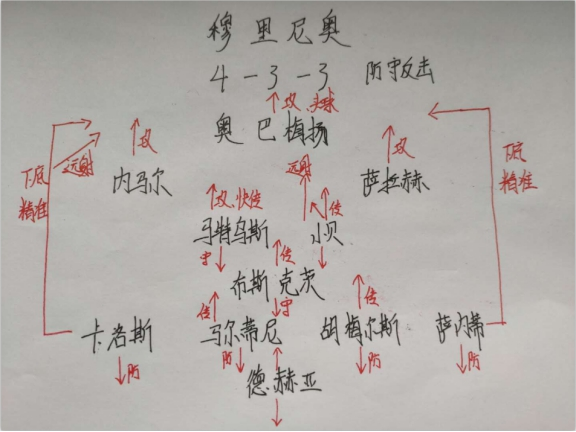 穆里尼奥
4-3-3 防守反击
攻、头球
奥巴梅扬
攻 攻
远射 远射
内马尔 萨拉赫
下底 精准 下底 精准
攻、快传 传
马特乌斯 小贝
守 传
布斯克茨
传 守 传
卡洛斯 马尔蒂尼 胡梅尔斯 萨内蒂
防 防 防 防
德赫亚